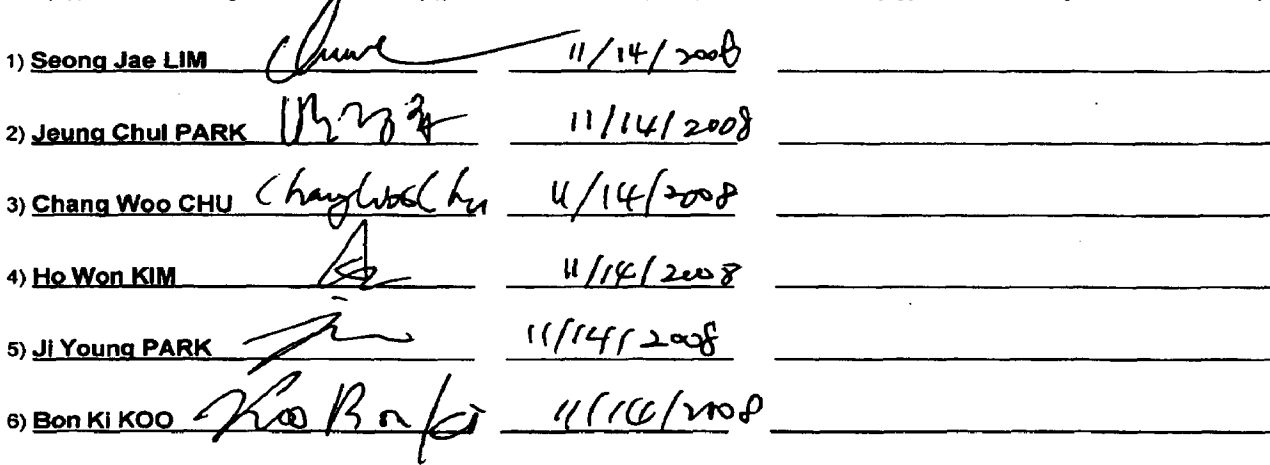 1) Seong Jae LIM 11/14/2008
2) Jeung Chul PARK 11/14/2008
3) Chang Woo CHU Chang Woo Chu 11/14/2008
4) Ho Won KIM 11/14/2008
5) Ji Young PARK 11/14/2008
6) Bon Ki KOO Koo Bon Ki 11/14/2008